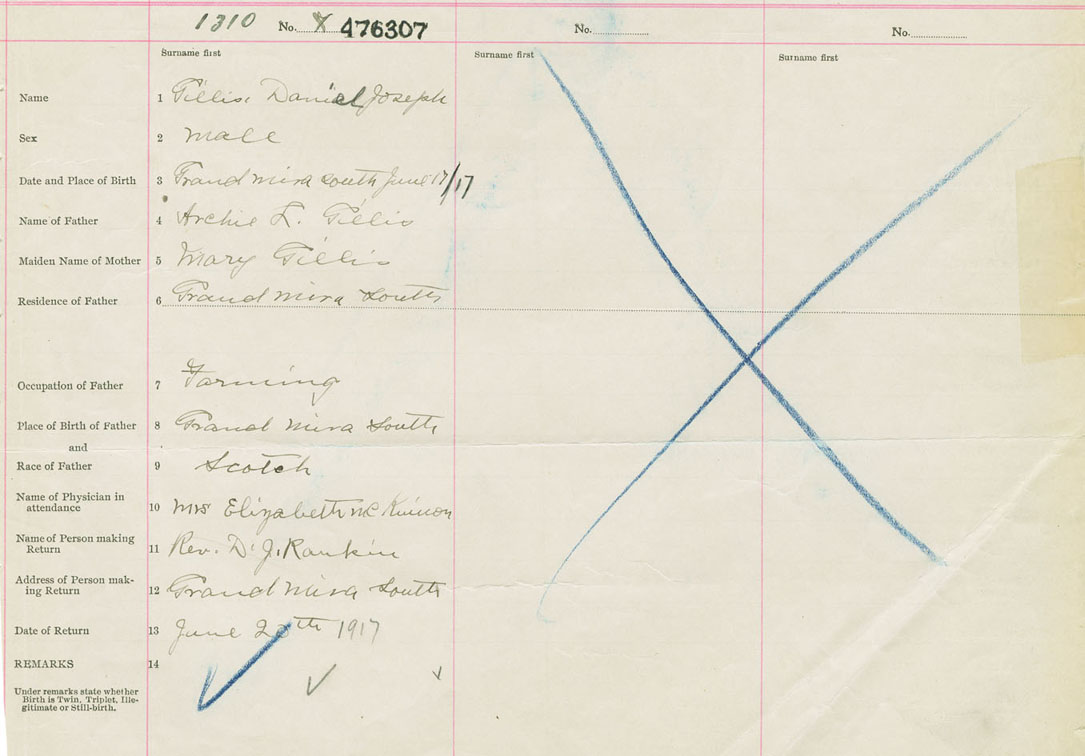 1310 No. 476307
No.
No.
Surname first
Surname first
Surname first
Name 1 Gillis, Daniel Joseph
Sex 2 Male
Date and Place of Birth 3 Grand Mira South June 17/17
Name of Father 4 Archie L. Gillis
Maiden Name of Mother 5 Mary Gillis
Residence of Father 6 Grand Mira South
Occupation of Father 7 Farming
Place of Birth of Father 8 Grand Mira South
and
Race of Father 9 Scotch
Name of Physician in
attendance 10 Mrs Elizabeth McKinnon
Name of Person making
Return 11 Rev. D. J. Rankin
Address of Person mak-
ing Return 12 Grand Mira South
Date of Return 13 June th 1917
REMARKS 14
Under remarks state whether
Birth is Twin, Triplet, Ille-
gitimate or Still-birth.